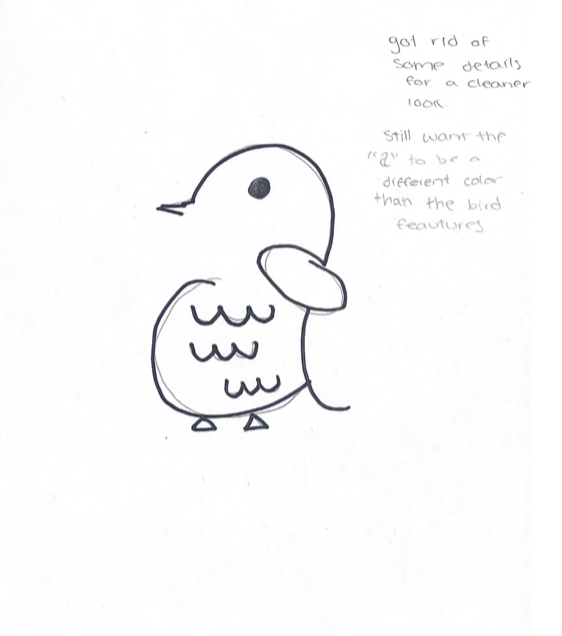 got rid of
some details
for a cleaner
look.
Still want the
"a" to be a
different color
than the bird
feautures